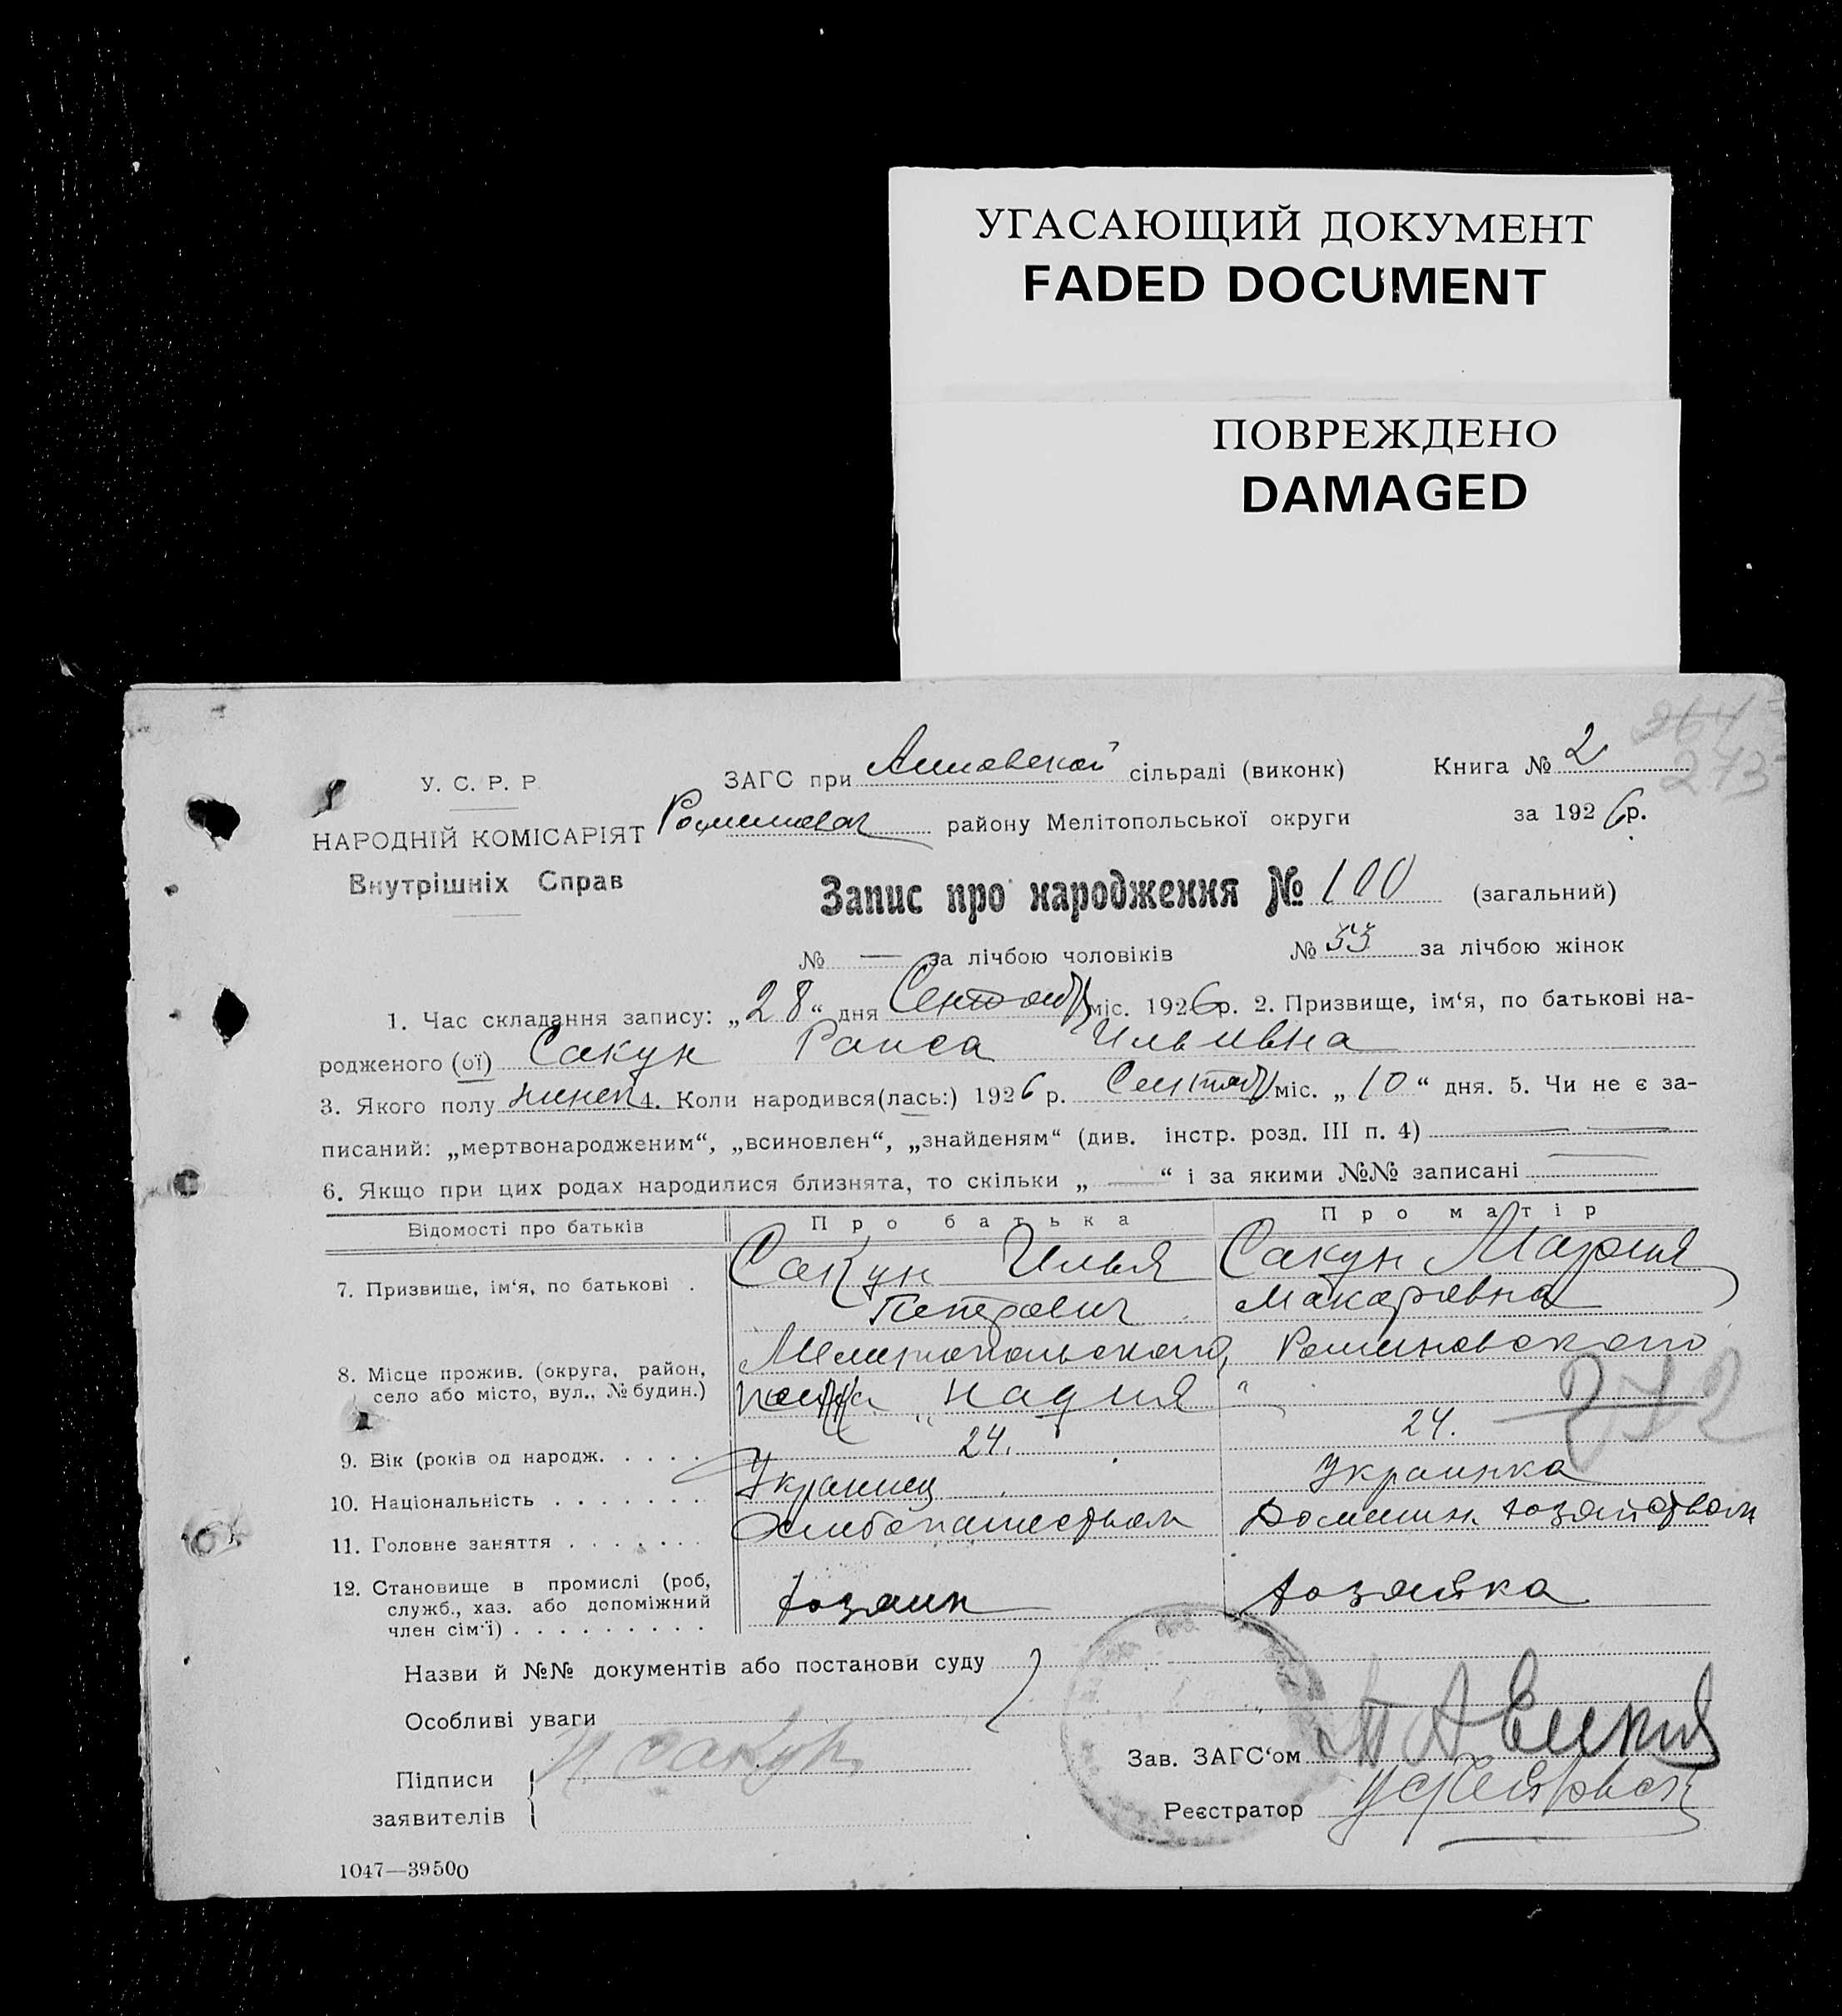 УГАСАЮЩИЙ ДОКУМЕНТ
FADED DOCUMENT
ПОВРЕЖДЕНО
DAMAGED
264
273
У. С. Р. Р.
НАРОДНІЙ КОМІСАРІЯТ
Внутрішніх Справ
ЗАГС при Анновской сільраді (виконк) Книга № 2
району Мелітопольської округи за 1926 р.
Запис про народження № 100 (загальний)
№ — за лічбою чоловіків № 53 за лічбою жінок
1. Час складання запису: „28“ дня міс. 1926 р. 2. Призвище, ім‘я, по батькові на-
родженого (ої) Сакун Раиса Ильивна
3. Якого полу 4. Коли народився(лась:) 1926 р. міс. „10“ дня. 5. Чи не є за-
писаний: „мертвонародженим“, „всиновлен“, „знайденям“ (див. інстр. розд. III п. 4)
6. Якщо при цих родах народилися близнята, то скільки „ — “ і за якими №№ записані
Відомості про батьків Про батька Про матір
7. Призвище, ім‘я, по батькові . Сакун Илья Сакун Мария
Петрович Макаровна
8. Місце прожив. (округа, район, Мелитопольского,
село або місто, вул., № будин.) Надия "
272
9. Вік (років од народж. . . . . 24. 24.
10. Національність . . . . . . . Украинец Украинка
11. Головне заняття . . . . . . . Хлебопашеством Домашн. хозяйством
12. Становище в промислі (роб,
служб., хаз. або допоміжний хозяин хозяйка
член сім‘ї) . . . . . . . . .
Назви й №№ документів або постанови суду
Особливі уваги
Підписи И Сакун
заявителів
Зав. ЗАГС‘ом
Реєстратор
1047—39500